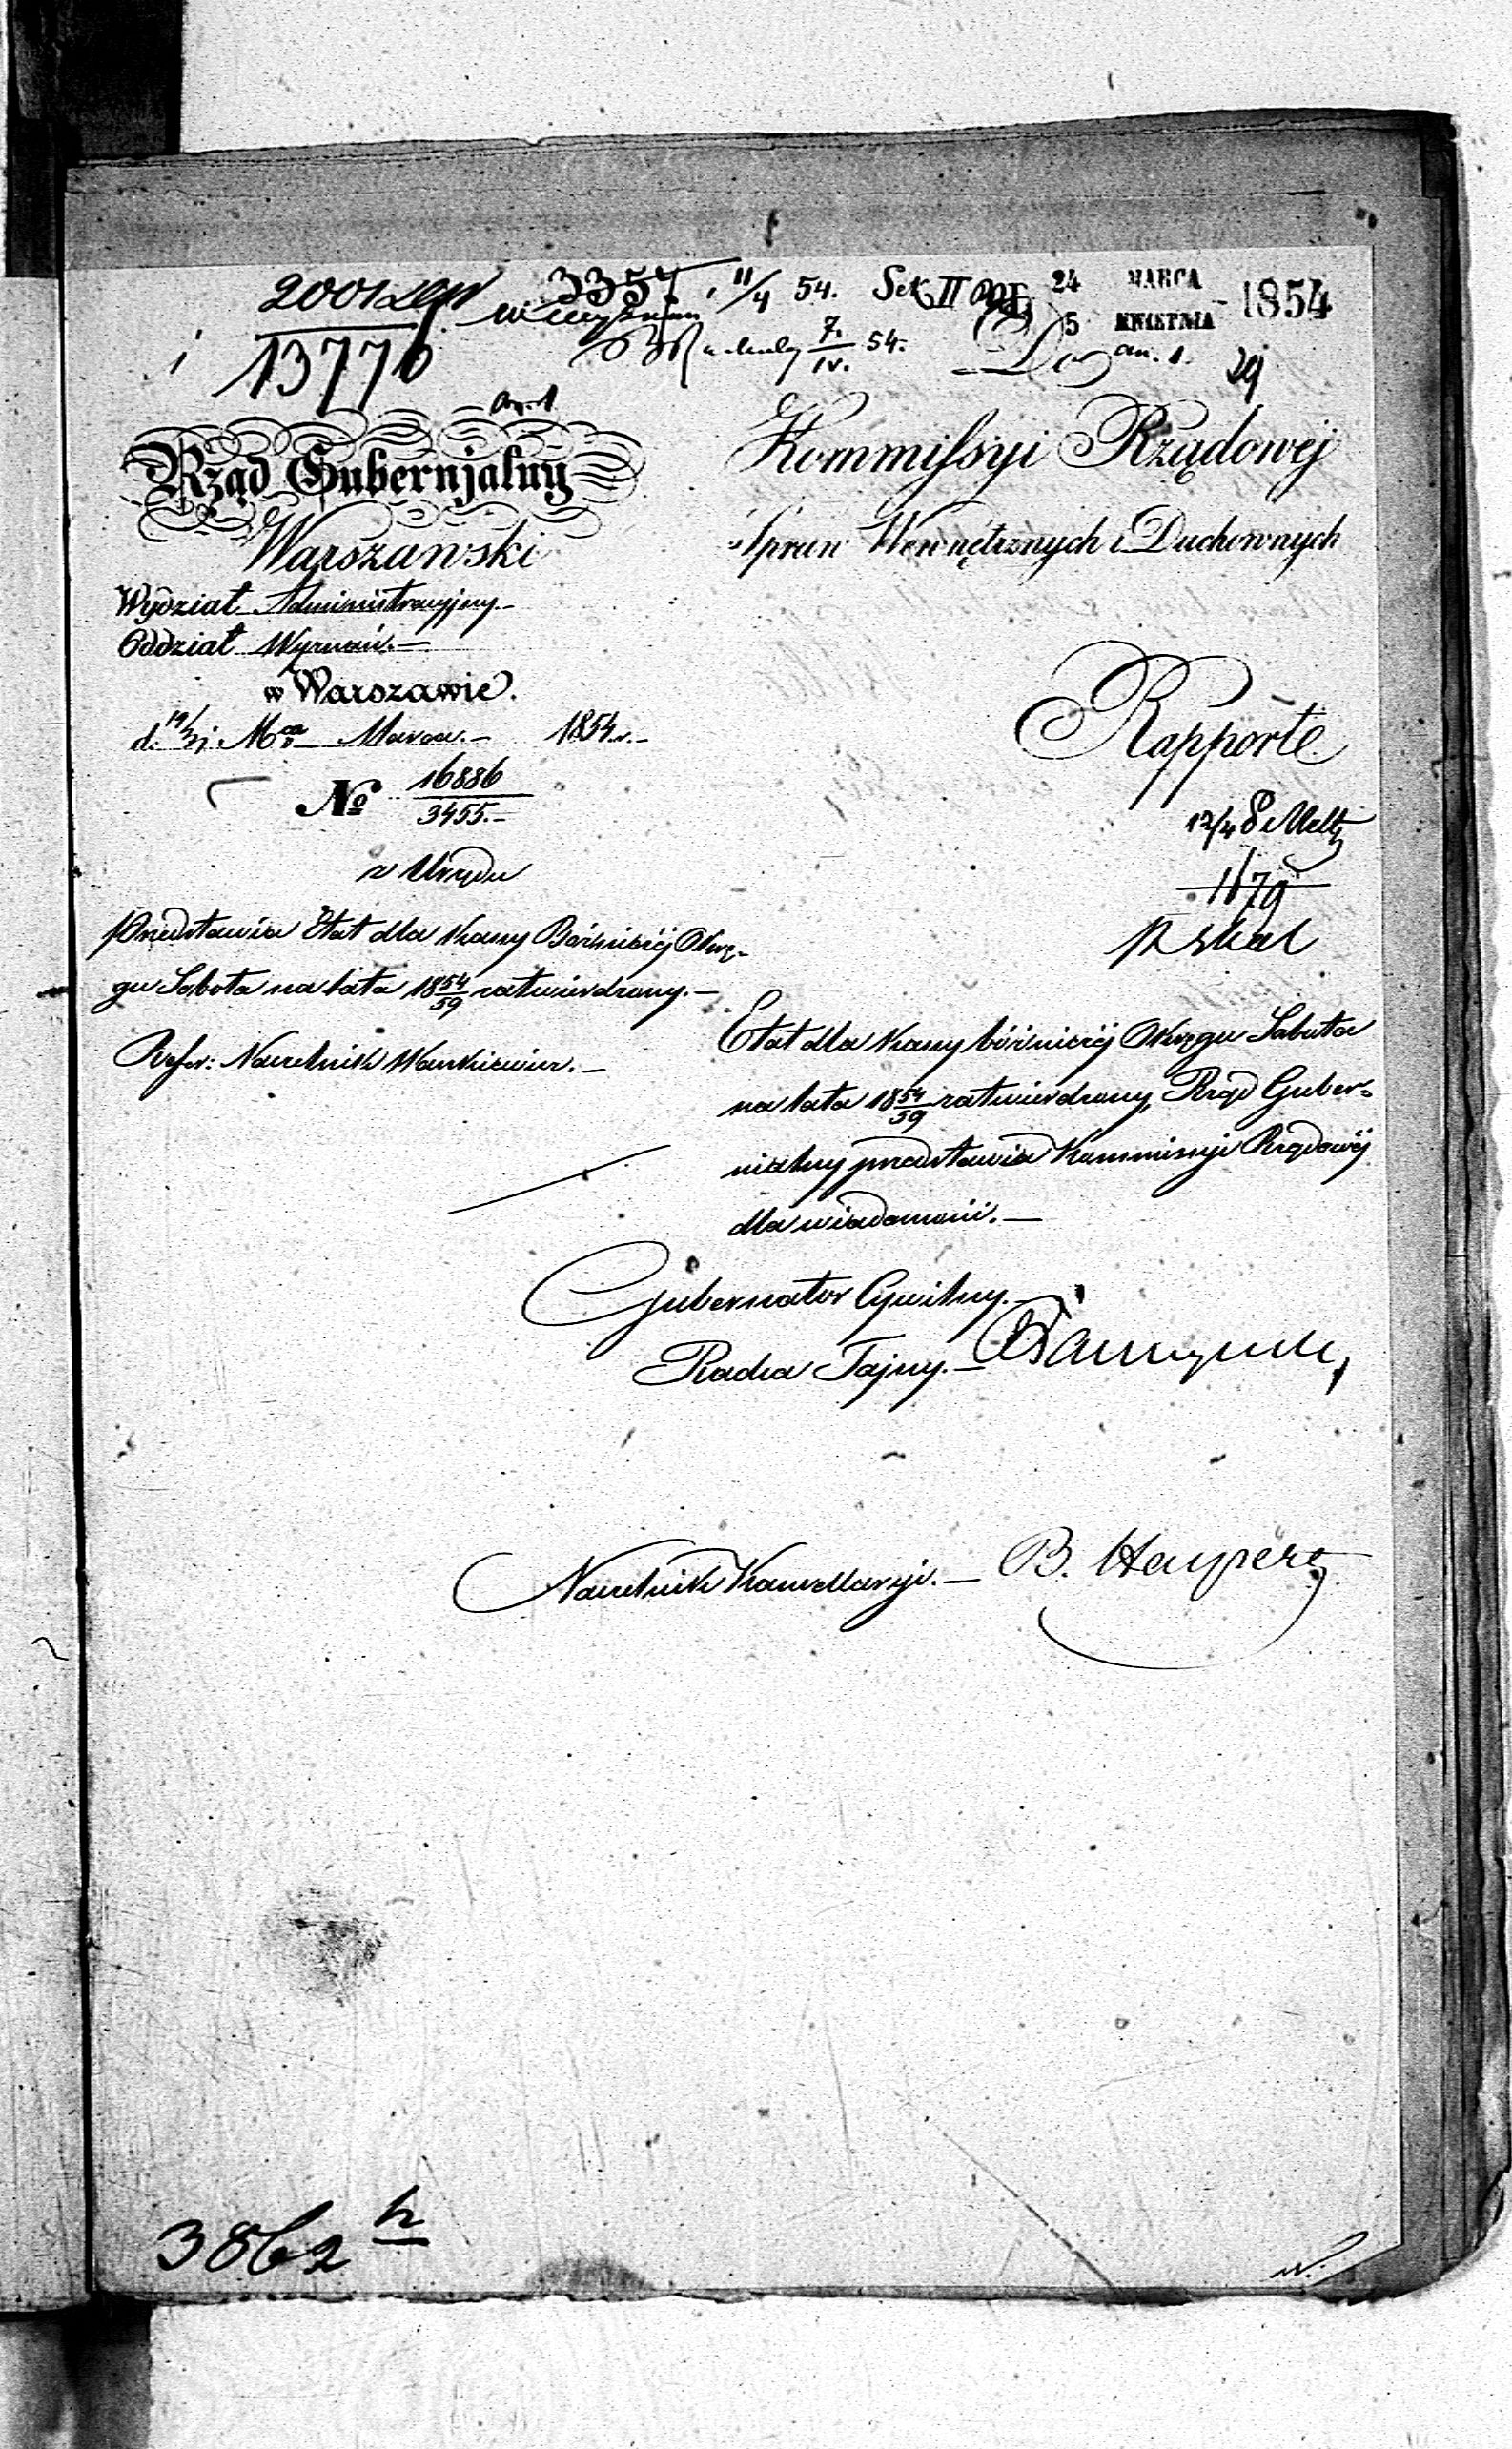 3357 11/4 54. Sek II 24 MARCA 1854
5 KWIETNIA
13770 7./IV. 54.
Rząd Gubernjalny
Warszawski
Wydział Administracyjny.—
Oddział Wyznań.—
w Warszawie.
d. 19/31 Mca Marca.— 1854 r.—
№ 16886/3455.—
z Urzędu
Przedstawia Etat dla Kassy Bóżniczéj Okrę-
gu Sobota na lata 1854/59 zatwierdzony.—
Refer: Naczelnik
Kommissyi Rządowéj
Spraw Wewnętrznych i Duchownych
Rapport
12/4
1679
Etat dla Kassy bóżniczéj Okręgu Sobota
na lata 1854/59 zatwierdzony, Rząd Guber-
nialny przedstawia Kommissyi Rządowéj
dla wiadomości.—
Gubernator Cywilny.—
Radca Tajny.—
Naczelnik Kancellaryi.— B.
3862